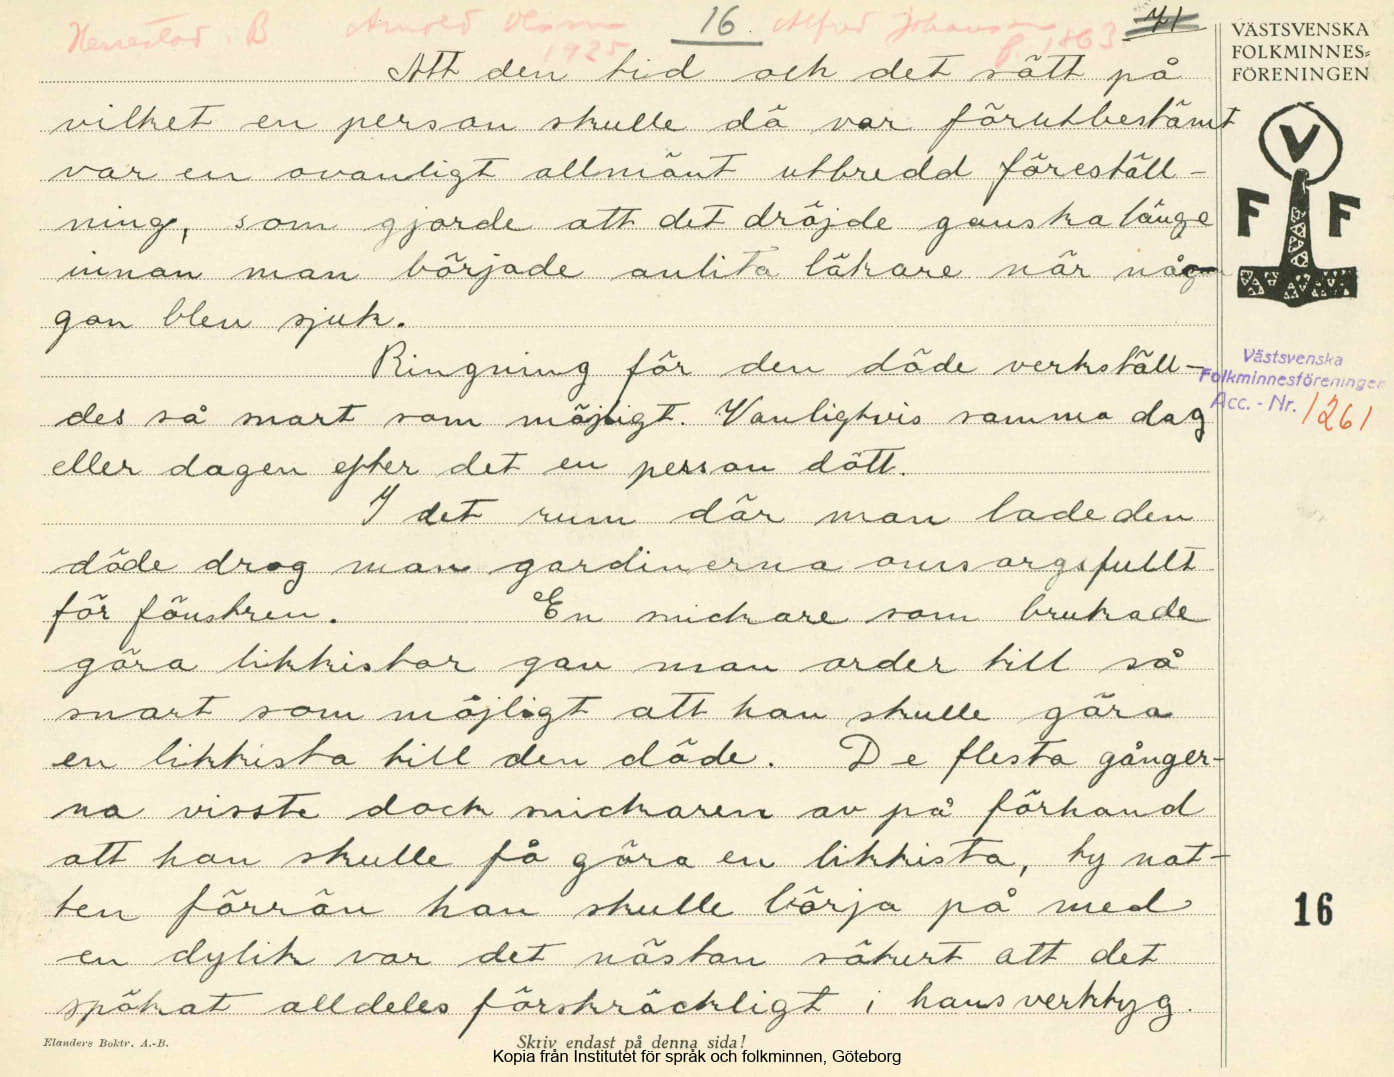 Herrestad. B Arnold Olsson 1925 16. Alfred Johansson f. 1863 71
VÄSTSVENSKA
FOLKMINNES=
FÖRENINGEN
V
F F
Att den tid och det sätt på
vilket en person skulle dö var förutbestämt
var en ovanligt allmänt utbredd föreställ-
ning, som gjorde att det dröjde ganska länge
innan man började anlita läkare när nå-
gon blev sjuk.
Ringning för den döde verkställ-
des så snart som möjligt. Vanligtvis samma dag
eller dagen efter det en person dött.
I det rum där man lade den
döde drog man gardinerna omsorgsfullt
för fönstren. En snickare som brukade
göra likkistor gav man order till så
snart som möjligt att han skulle göra
en likkista till den döde. De flesta gånger-
na visste dock snickaren av på förhand
att han skulle få göra en likkista, ty nat-
ten förrän han skulle börja på med
en dylik var det nästan säkert att det
spökat alldeles förskräckligt i hans verktyg.
Västsvenska
Folkminnesföreningen
Acc. - Nr. 1261
16
Elanders Boktr. A.-B.
Skriv endast på denna sida!
Kopia från Institutet för språk och folkminnen, Göteborg